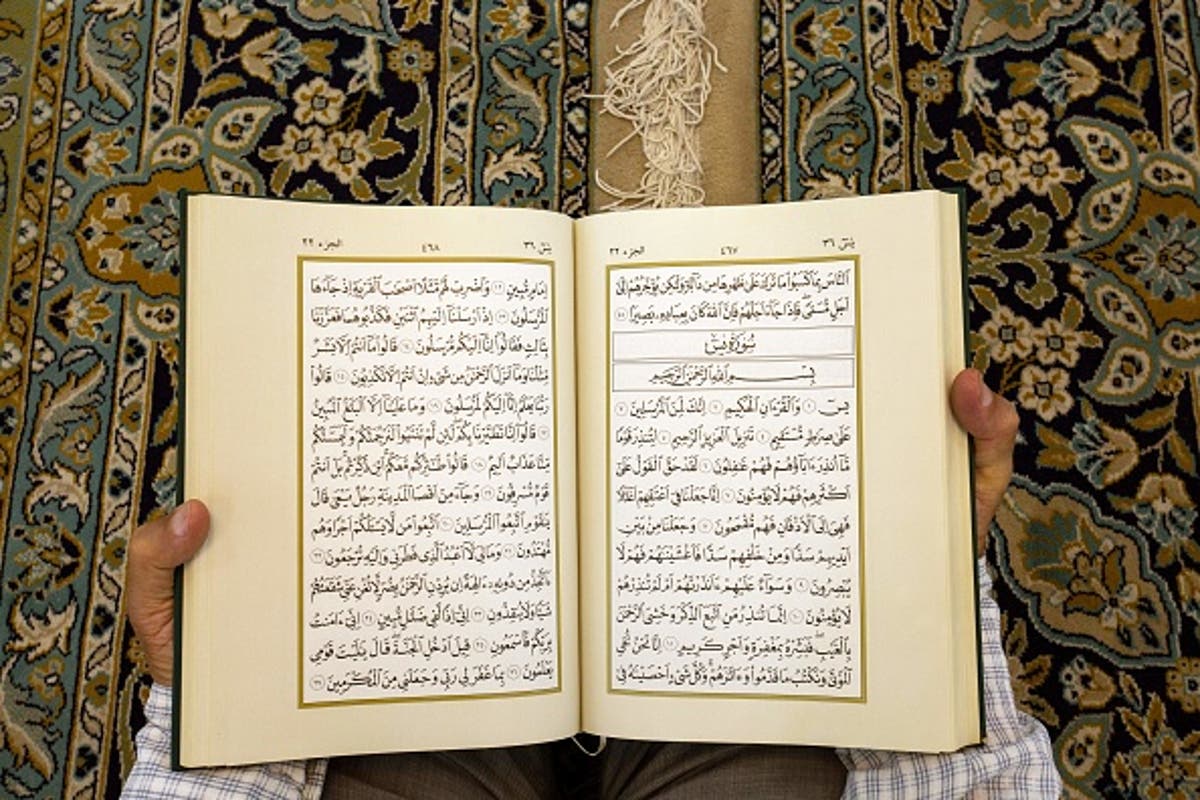 يٰسٓ ٣٦ ٤٦٧ الجزء ٢٢
ٱلنَّاسَ بِمَا كَسَبُوا۟ مَا تَرَكَ عَلَىٰ ظَهْرِهَا مِن دَآبَّةٍ وَلَٰكِن يُؤَخِّرُهُمْ إِلَىٰٓ
أَجَلٍ مُّسَمًّى ۖ فَإِذَا جَآءَ أَجَلُهُمْ فَإِنَّ ٱللَّهَ كَانَ بِعِبَادِهِۦ بَصِيرًۢا ٤٥
سُورَةُ يٰسٓ
بِسْمِ ٱللَّهِ ٱلرَّحْمَٰنِ ٱلرَّحِيمِ
يسٓ ١ وَٱلْقُرْءَانِ ٱلْحَكِيمِ ٢ إِنَّكَ لَمِنَ ٱلْمُرْسَلِينَ ٣
عَلَىٰ صِرَٰطٍ مُّسْتَقِيمٍ ٤ تَنزِيلَ ٱلْعَزِيزِ ٱلرَّحِيمِ ٥ لِتُنذِرَ قَوْمًا
مَّآ أُنذِرَ ءَابَآؤُهُمْ فَهُمْ غَٰفِلُونَ ٦ لَقَدْ حَقَّ ٱلْقَوْلُ عَلَىٰٓ
أَكْثَرِهِمْ فَهُمْ لَا يُؤْمِنُونَ ٧ إِنَّا جَعَلْنَا فِىٓ أَعْنَٰقِهِمْ أَغْلَٰلًا
فَهِىَ إِلَى ٱلْأَذْقَانِ فَهُم مُّقْمَحُونَ ٨ وَجَعَلْنَا مِنۢ بَيْنِ
أَيْدِيهِمْ سَدًّا وَمِنْ خَلْفِهِمْ سَدًّا فَأَغْشَيْنَٰهُمْ فَهُمْ لَا
يُبْصِرُونَ ٩ وَسَوَآءٌ عَلَيْهِمْ ءَأَنذَرْتَهُمْ أَمْ لَمْ تُنذِرْهُمْ
لَا يُؤْمِنُونَ ١٠ إِنَّمَا تُنذِرُ مَنِ ٱتَّبَعَ ٱلذِّكْرَ وَخَشِىَ ٱلرَّحْمَٰنَ
بِٱلْغَيْبِ ۖ فَبَشِّرْهُ بِمَغْفِرَةٍ وَأَجْرٍ كَرِيمٍ ١١ إِنَّا نَحْنُ نُحْىِ
ٱلْمَوْتَىٰ وَنَكْتُبُ مَا قَدَّمُوا۟ وَءَاثَٰرَهُمْ ۚ وَكُلَّ شَىْءٍ أَحْصَيْنَٰهُ فِىٓ
يٰسٓ ٣٦ ٤٦٨ الجزء ٢٢
إِمَامٍ مُّبِينٍ ١٢ وَٱضْرِبْ لَهُم مَّثَلًا أَصْحَٰبَ ٱلْقَرْيَةِ إِذْ جَآءَهَا
ٱلْمُرْسَلُونَ ١٣ إِذْ أَرْسَلْنَآ إِلَيْهِمُ ٱثْنَيْنِ فَكَذَّبُوهُمَا فَعَزَّزْنَا
بِثَالِثٍ فَقَالُوٓا۟ إِنَّآ إِلَيْكُم مُّرْسَلُونَ ١٤ قَالُوا۟ مَآ أَنتُمْ إِلَّا بَشَرٌ
مِّثْلُنَا وَمَآ أَنزَلَ ٱلرَّحْمَٰنُ مِن شَىْءٍ إِنْ أَنتُمْ إِلَّا تَكْذِبُونَ ١٥ قَالُوا۟
رَبُّنَا يَعْلَمُ إِنَّآ إِلَيْكُمْ لَمُرْسَلُونَ ١٦ وَمَا عَلَيْنَآ إِلَّا ٱلْبَلَٰغُ ٱلْمُبِينُ
١٧ قَالُوٓا۟ إِنَّا تَطَيَّرْنَا بِكُمْ ۖ لَئِن لَّمْ تَنتَهُوا۟ لَنَرْجُمَنَّكُمْ وَلَيَمَسَّنَّكُم
مِّنَّا عَذَابٌ أَلِيمٌ ١٨ قَالُوا۟ طَٰٓئِرُكُم مَّعَكُمْ ۚ أَئِن ذُكِّرْتُم ۚ بَلْ أَنتُمْ
قَوْمٌ مُّسْرِفُونَ ١٩ وَجَآءَ مِنْ أَقْصَا ٱلْمَدِينَةِ رَجُلٌ يَسْعَىٰ قَالَ
يَٰقَوْمِ ٱتَّبِعُوا۟ ٱلْمُرْسَلِينَ ٢٠ ٱتَّبِعُوا۟ مَن لَّا يَسْـَٔلُكُمْ أَجْرًا وَهُم
مُّهْتَدُونَ ٢١ وَمَا لِىَ لَآ أَعْبُدُ ٱلَّذِى فَطَرَنِى وَإِلَيْهِ تُرْجَعُونَ ٢٢
ءَأَتَّخِذُ مِن دُونِهِۦٓ ءَالِهَةً إِن يُرِدْنِ ٱلرَّحْمَٰنُ بِضُرٍّ لَّا تُغْنِ عَنِّى شَفَٰعَتُهُمْ
شَيْـًٔا وَلَا يُنقِذُونِ ٢٣ إِنِّىٓ إِذًا لَّفِى ضَلَٰلٍ مُّبِينٍ ٢٤ إِنِّىٓ ءَامَنتُ
بِرَبِّكُمْ فَٱسْمَعُونِ ٢٥ قِيلَ ٱدْخُلِ ٱلْجَنَّةَ ۖ قَالَ يَٰلَيْتَ قَوْمِى
يَعْلَمُونَ ٢٦ بِمَا غَفَرَ لِى رَبِّى وَجَعَلَنِى مِنَ ٱلْمُكْرَمِينَ ٢٧